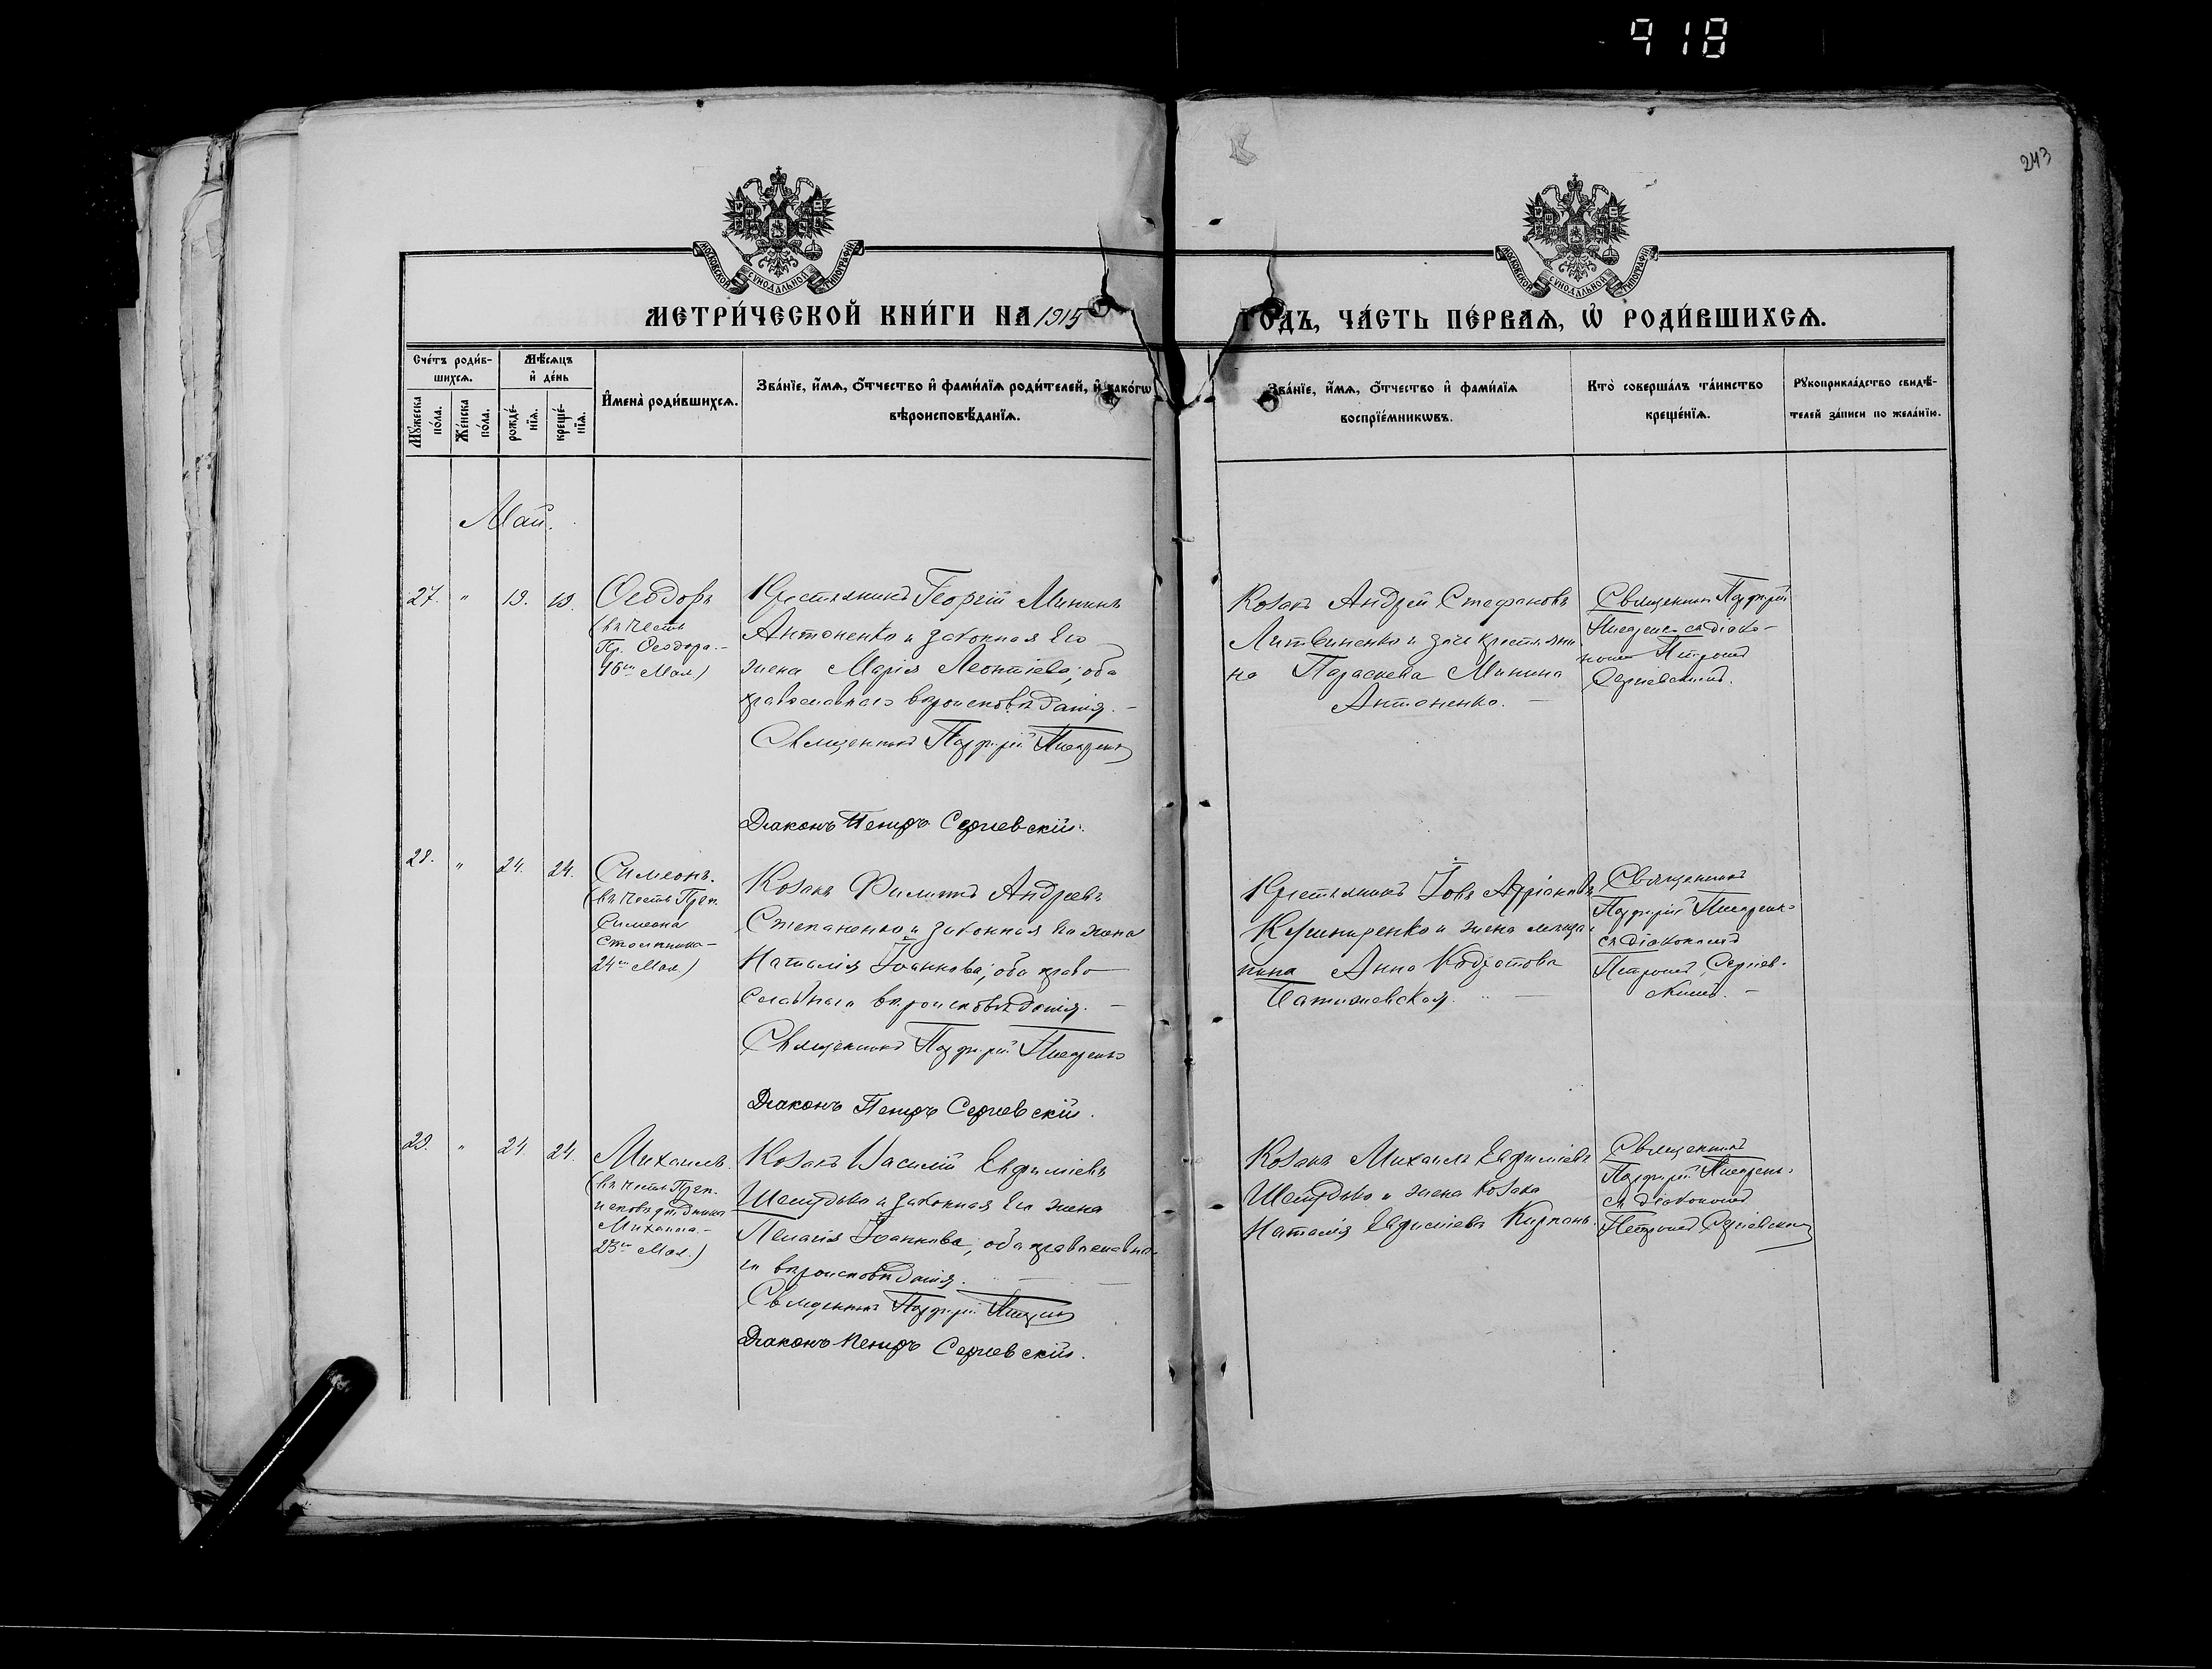 918
243
МОСКОВСКОЙ СѴНОДАЛЬНОЙ ТИПОГРАФІИ
МОСКОВСКОЙ СѴНОДАЛЬНОЙ ТИПОГРАФІИ
МЕТРИ́ЧЕСКОЙ КНИ́ГИ НА 1915
ГО́ДЪ, ЧА́СТЬ ПЕ́РВАѦ, Ѡ҆ РОДИ́ВШИХСѦ.
Сче́тъ роди́в-
шихсѧ.
Мꙋ́жеска
по́ла.
Же́нска
по́ла.
Мѣ́сѧцъ
и҆ де́нь
рожде́-
нїѧ.
креще́-
нїѧ.
И҆мена̀ роди́вшихсѧ.
Зва́нїе, и҆́мѧ, ѻ҆́тчество и҆ фами́лїѧ роди́телей, и҆ како́гѡ
вѣроисповѣ́данїѧ.
Зва́нїе, и҆́мѧ, ѻ҆́тчество и҆ фами́лїѧ
воспрїе́мникѡвъ.
Кто̀ соверша́лъ та́инство
креще́нїѧ.
Рꙋкоприкла́дство свидѣ́-
телей за́писи по жела́нїю.
Май.
27. " 19. 19.
Ѳеодоръ
(въ честь
Пр. Ѳеодора.-
16го Мая)
Крестьянинъ Георгій Мининъ
Антоненко и законная его
жена Марія Леонтіева; оба
православнаго вѣроисповѣданія. -
Священникъ Порфирій
Діаконъ Петръ Сергіевскій.
Козакъ Андрей Стефановъ
Литвиненко и крестьяни
на Параскева Минина
Антоненко. -
Священникъ Порфирій
съ діако-
номъ Петромъ
Сергіевскимъ.
28. " 24. 24.
Симеонъ.
(въ честь Преп.
Симеона
столпника-
24го Мая)
Козакъ Филиппъ Андреевъ
Степаненко и законная его жена
Наталія Іоаннова; оба право
славнаго вѣроисповѣданія. -
Священникъ Порфирій
Діаконъ Петръ Сергіевскій.
Крестьянинъ Іовъ Адріановъ
Кушниренко и жена
Анна
Священникъ
Порфирій
съ діакономъ
Петромъ Сергіев-
скимъ. -
29. " 24 24.
Михаилъ.
(въ честь Преп.
исповѣдника
Михаила-
23го Мая.)
Козакъ Василій Евфиміевъ
Шемудько и законная его жена
Пелагія Іоаннова; оба православна-
го вѣроисповѣданія.
Священникъ Порфирій
Діаконъ Петръ Сергіевскій.
Козакъ Михаилъ Евфиміевъ
Шемудько и жена козака
Наталія Евфиміева
Священникъ
Порфирій
съ діакономъ
Петромъ Сергіевскимъ